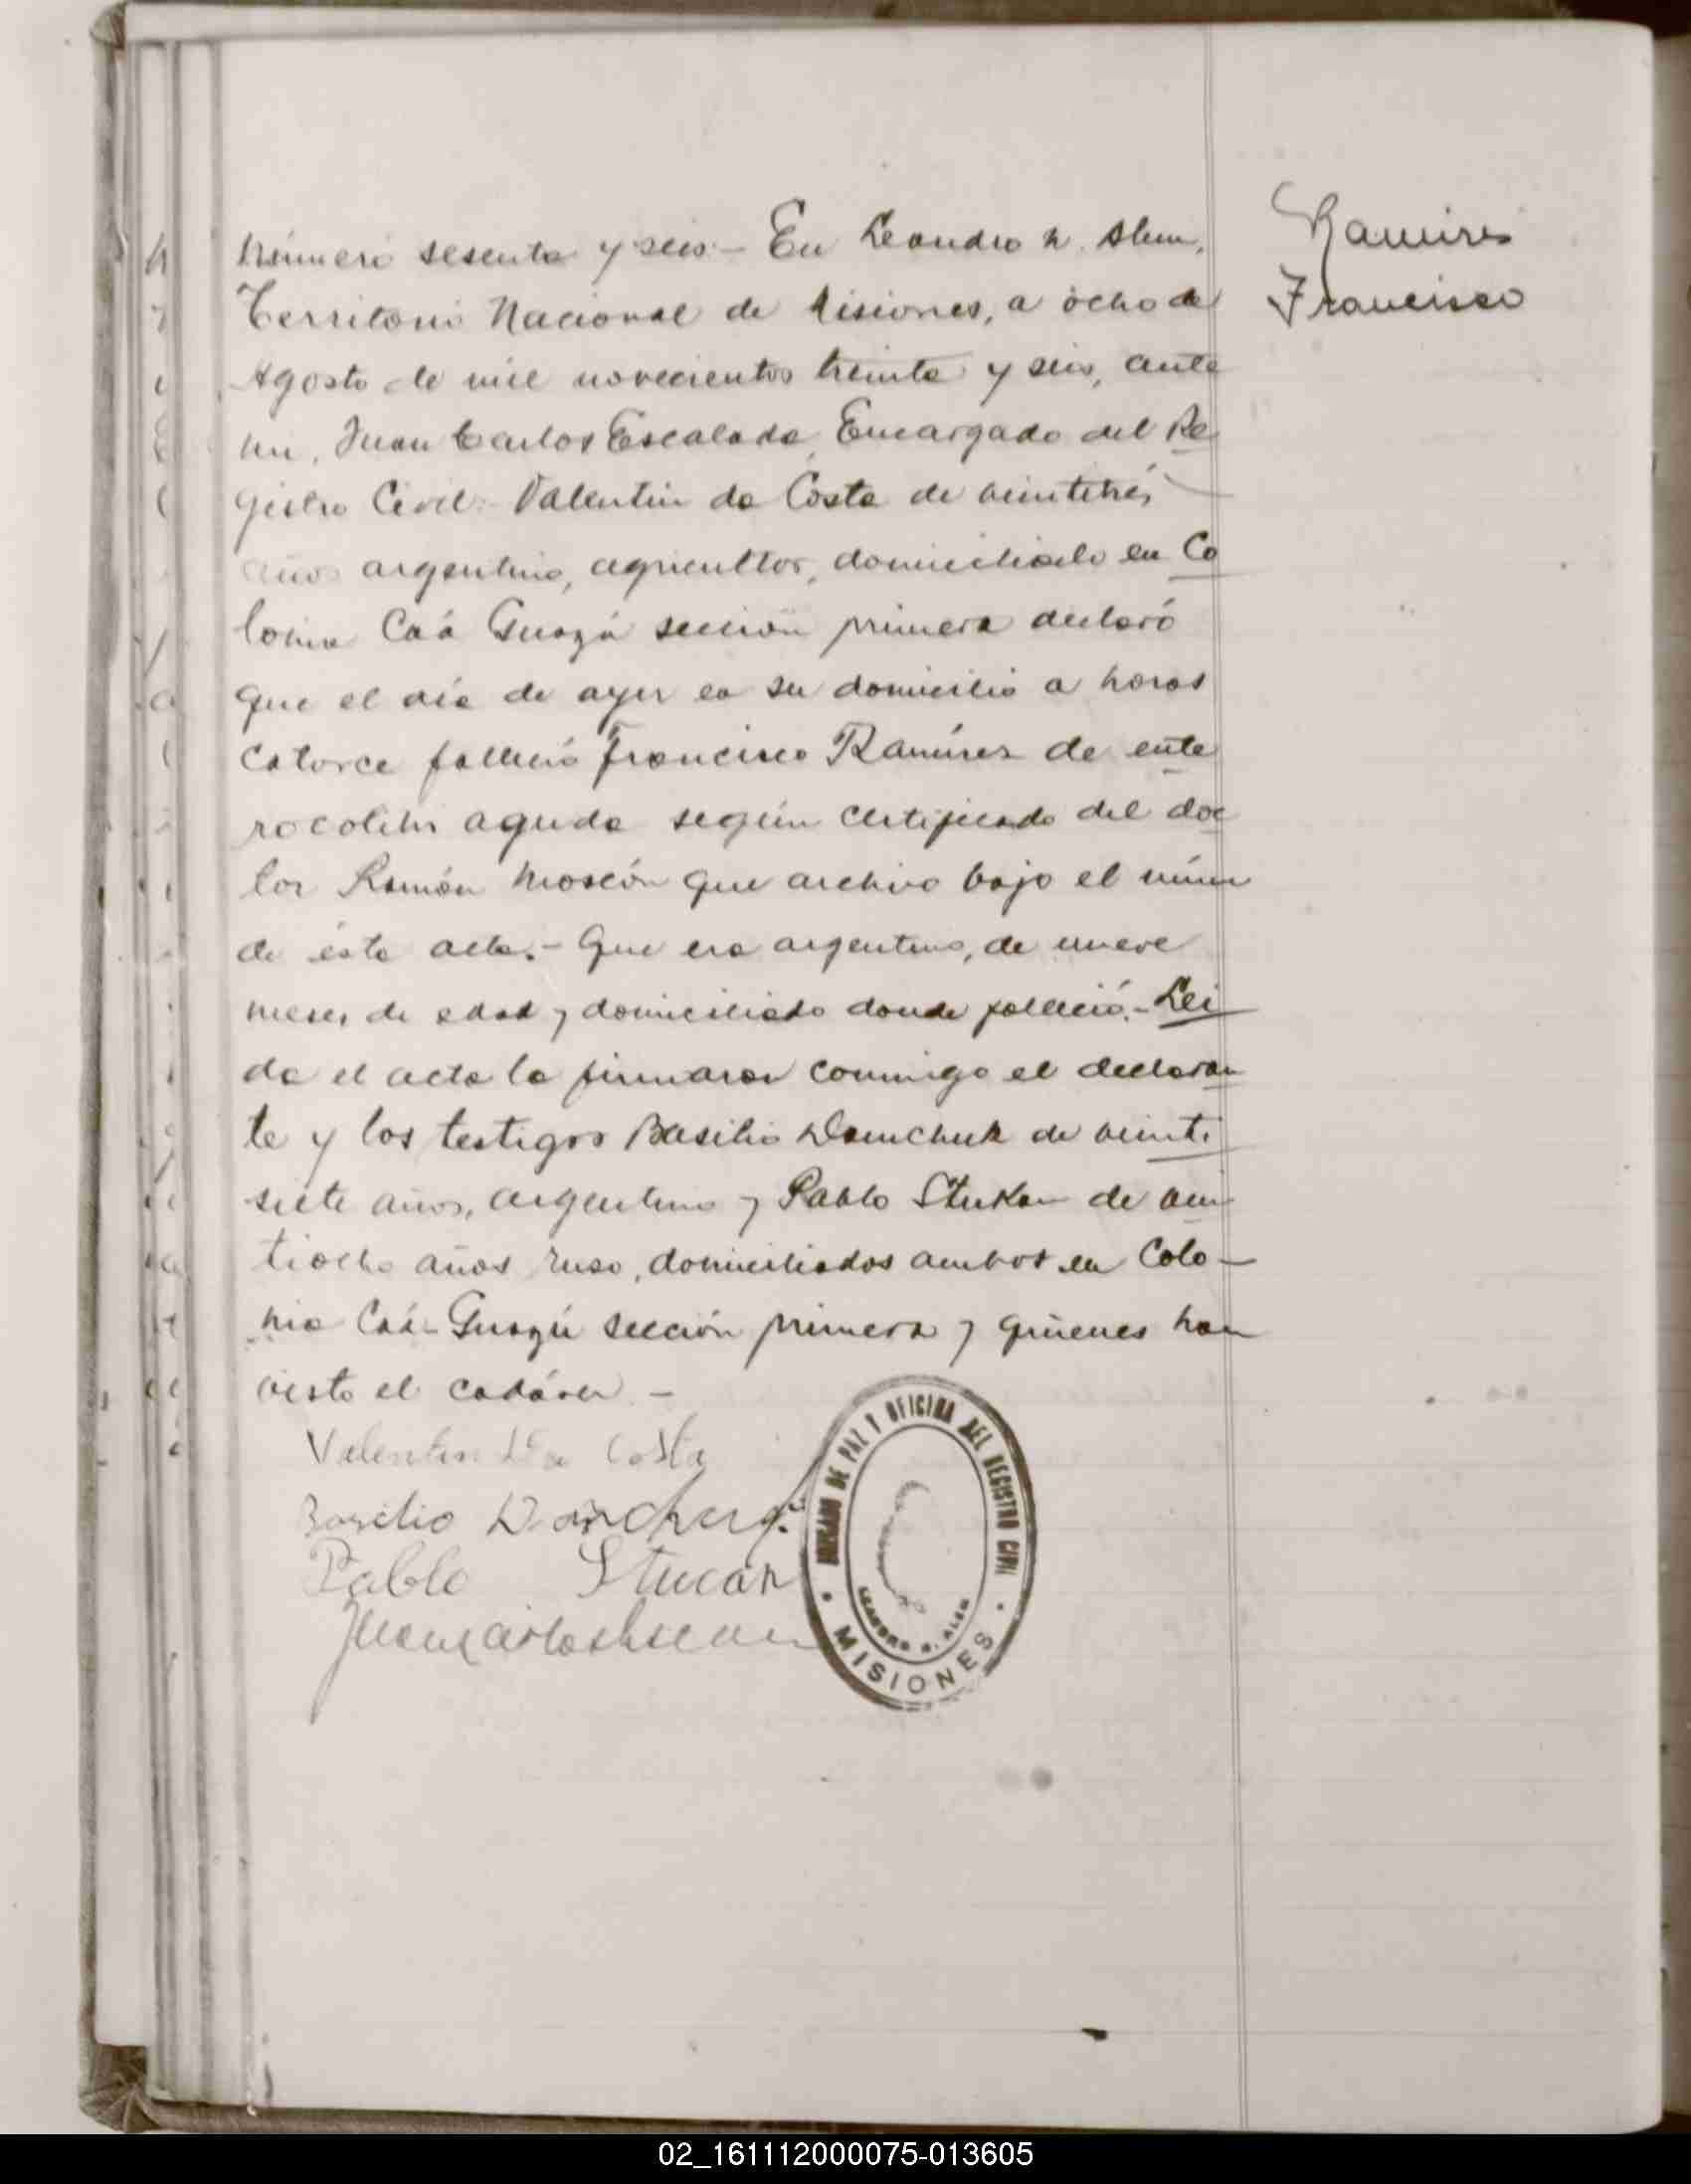 Ramires
Francisco
Número sesenta y seis.- En Leandro N. Alem,
Territorio Nacional de Misiones, a ocho de
Agosto de mil novecientos treinta y seis, ante
mi, Juan Carlos Escalada, Encargado del Re
gistro Civil:- Valentin da Costa de veintitrés
años argentino, agricultor, domiciliado en Co
lonia Caá Guazú sección primera declaró
que el día de ayer en su domicilio a horas
catorce falleció Francisco Ramires de ente
rocolitis aguda según certificado del doc
tor Ramón que archivo bajo el núm
de ésta acta.- Que era argentino, de nueve
meses de edad y domiciliado donde falleció.- Lei
da el acta la firmaron conmigo el declaran
te y los testigos Basilio de veinti
siete años, argentino y Pablo Stukan de vein
tiocho años ruso, domiciliados ambos en Colo-
nia Caá-Guazú sección primera y quienes han
visto el cadáver.-
Valentin Da Costa
Basilio
Pablo Stucan
JUZGADO DE PAZ Y OFICINA DEL REGISTRO CIVIL
LEANDRO N. ALEM
MISIONES
02_161112000075-013605